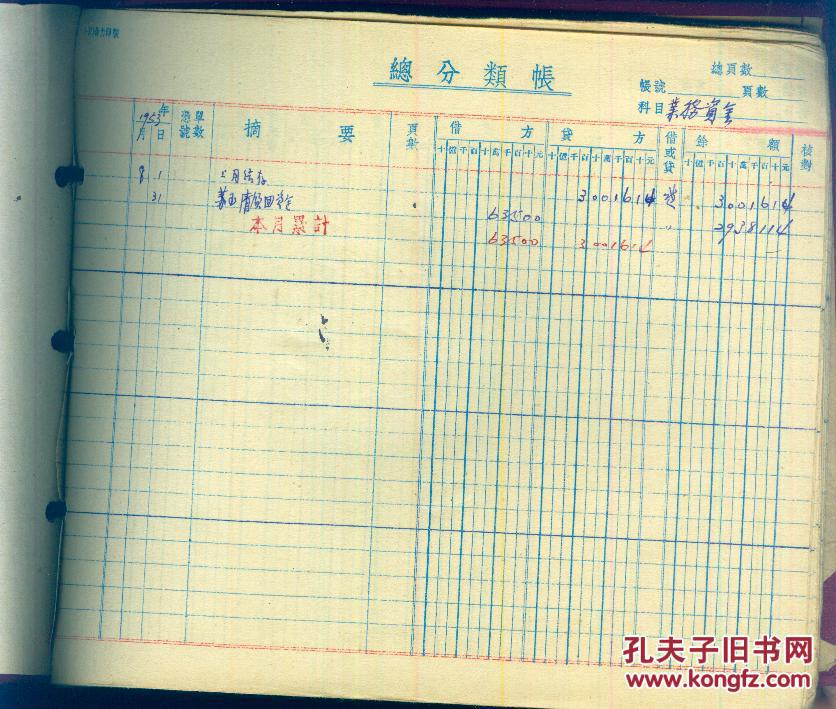 總分類帳
總頁數
帳號 頁數
科目 業務資金
1953年
月 日 憑單號數 摘要 頁數 借方 貸方 借或貸 餘額 核對
十億千百十萬千百十元 十億千百十萬千百十元 十億千百十萬千百十元
8 1 上月結存 3001614 貸 3001614
31 63500 〃 2938114
本月累計 63500 3001614
孔夫子旧书网
www.kongfz.com